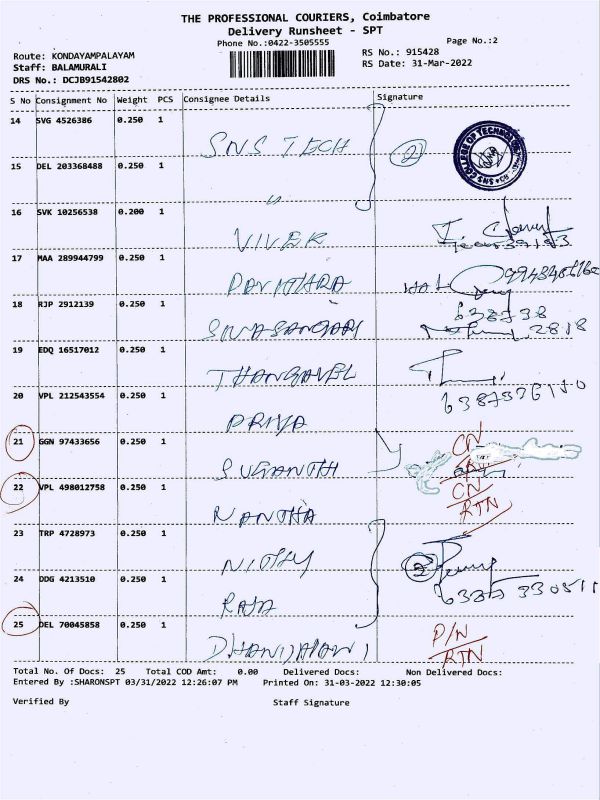 THE PROFESSIONAL COURIERS, Coimbatore
Delivery Runsheet - SPT
Phone No.:0422-3505555
Page No.:2
Route: KONDAYAMPALAYAM
RS No.: 915428
Staff: BALAMURALI
RS Date: 31-Mar-2022
DRS No.: DCJB91542802
S No Consignment No Weight PCS Consignee Details Signature
14 SVG 4526386 0.250 1
SNS TECH
2
15 DEL 203368488 0.250 1
"
16 SVK 10256538 0.200 1
VIVEK
17 MAA 289944799 0.250 1
PAVITHRA
18 RJP 2912139 0.250 1
SIVASANGARI
638738
2818
19 EDQ 16517012 0.250 1
THANGAVEL
20 VPL 212543554 0.250 1
PRIYA
21 GGN 97433656 0.250 1
SUGANTHI
CN
22 VPL 498012758 0.250 1
NANTHA
CN
RTN
23 TRP 4728973 0.250 1
NITHY
2
24 DDG 4213510 0.250 1
RAJA
25 DEL 70045858 0.250 1
P/N
RTN
Total No. Of Docs: 25 Total COD Amt: 0.00 Delivered Docs: Non Delivered Docs:
Entered By :SHARONSPT 03/31/2022 12:26:07 PM Printed On: 31-03-2022 12:30:05
Verified By Staff Signature